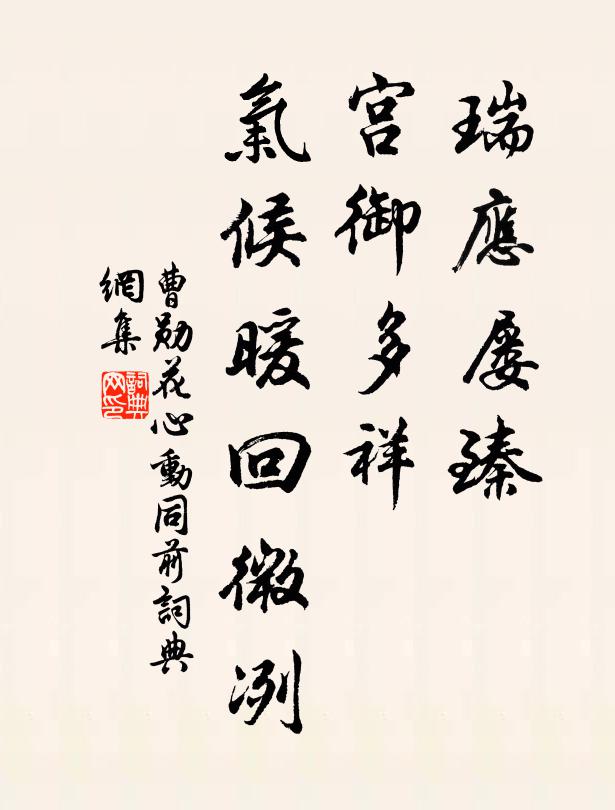 瑞應屡臻
宫御多祥
氣候暖回微冽
曹勛花心動同前詞典
網集
詞典网印